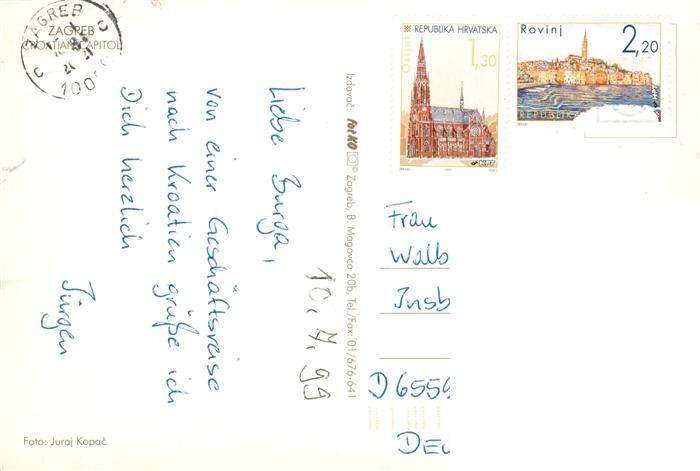 ZAGREB
ZAGREB
CROATIAN CAPITOL
Liebe Burga,
von einer Geschäftsreise
nach Kroatien grüße ich
Dich herzlich
Jürgen
10.7.99
Foto: Juraj Kopač
Izdavač: FotKO © Zagreb, B. Magovca 20b, Tel./Fax: 01/676-641
REPUBLIKA HRVATSKA
Osijek
1,30
Rovinj
2,20
REPUBLIKA
Frau
Walb
Insb
D 6559
DEU